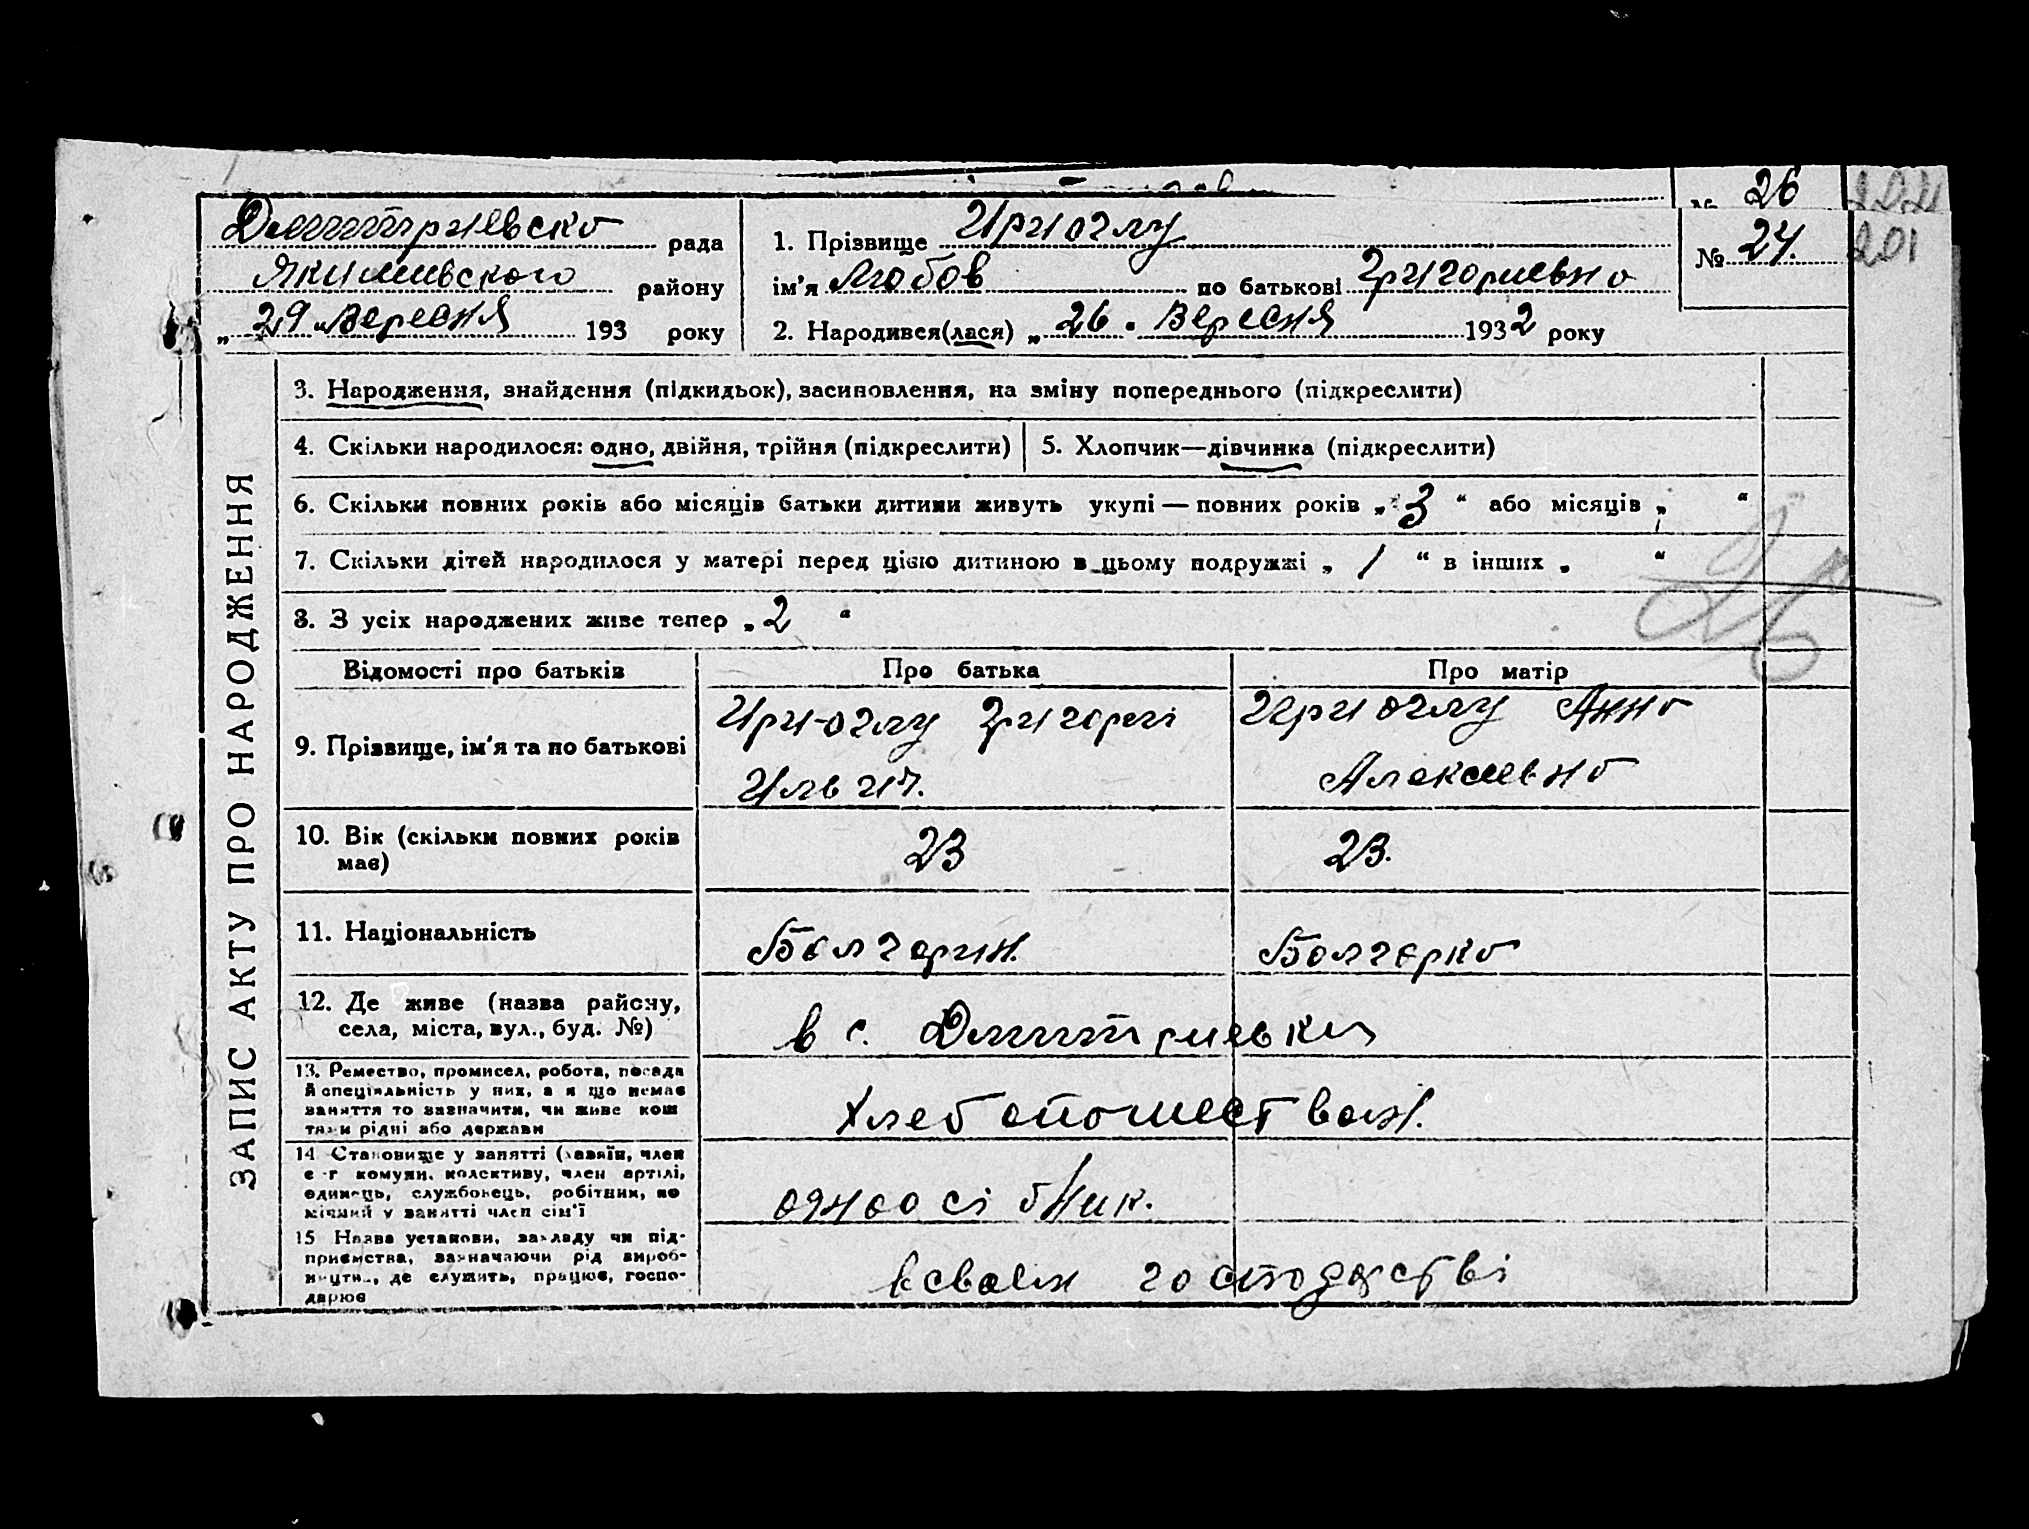 № 26
Дмитриевско рада
Якимивского району
„29“ Вересня 193 року
1. Прізвище Ириоглу
ім'я Любов по батькові Григориевно
2. Народився(лася) „26“ Вересня 1932 року
№ 24.
201
ЗАПИС АКТУ ПРО НАРОДЖЕННЯ
3. Народження, знайдення (підкидьок), засиновлення, на зміну попереднього (підкреслити)
4. Скільки народилося: одно, двійня, трійня (підкреслити) 5. Хлопчик—дівчинка (підкреслити)
6. Скільки повних років або місяців батьки дитини живуть укупі — повних років „3“ або місяців „ “
7. Скільки дітей народилося у матері перед цією дитиною в цьому подружжі „1“ в інших „ “
8. З усіх народжених живе тепер „2“
Відомості про батьків Про батька Про матір
9. Прізвище, ім'я та по батькові
Ири-оглу Григорі
Ильич.
Ириоглу Анно
Алексиевно
10. Вік (скільки повних років
має)
23 23.
11. Національність Болгарин. Болгарко
12. Де живе (назва району,
села, міста, вул., буд. №)
в с. Дмитриевки
13. Ремество, промисел, робота, посада
й спеціяльність у них, а я що немає
заняття то зазначити, чи живе кош
тами рідні або держави
Хлебопошествам.
14 Становище у занятті (хазяїн, член
с-г комуни, колективу, член артілі,
одинець, службовець, робітник, по
мічний у занятті член сім'ї
одноосібник.
15 Назва установи, закладу чи під-
приємства, зазначаючи рід вироб-
ництв., де служить, працює, госпо-
дарює
в своем господарстві